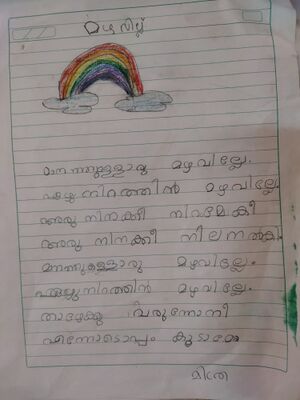 മഴവില്ല്
മാനത്തുള്ളൊരു മഴവില്ലേ.
ഏഴു നിറത്തിൻ മഴവില്ലേ
ആരു നിനക്കീ നിറമേകീ
ആരു നിനക്കീ നില നൽകി
മാനത്തുള്ളൊരു മഴവില്ലേ.
ഏഴു നിറത്തിൻ മഴവില്ലേ.
താഴേക്കു വരുന്നോ നീ
എന്നോടൊപ്പം കൂടാമോ